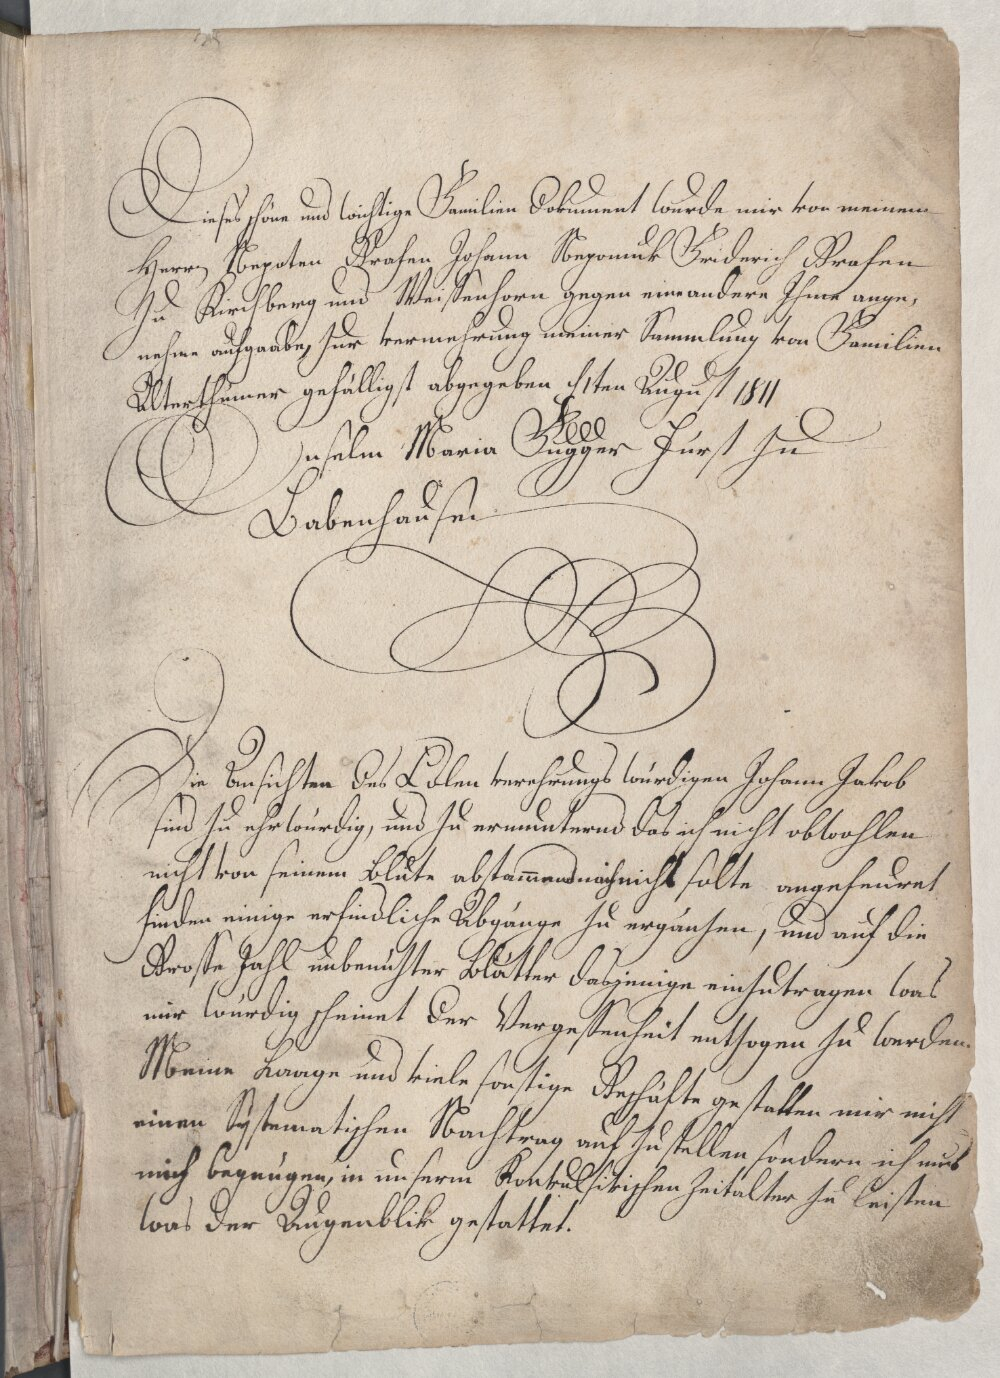 Dieses schöne und wichtige Familien Dokument wurde mir von meinem
Herrn Nepoten Grafen Johann Nepomuk Friderich Grafen
zu Kirchberg und Weissenhorn gegen eine andere Ihme ange-
nehme aufgaabe, zur vermehrung meiner Sammlung von Familien
Alterthümer gefälligst abgegeben 1ten August 1811
Anselm Maria Fugger Fürst zu
Babenhausen
Die Ansichten des Edlen verehrungs würdigen Johann Jakob
sind zu ehrwürdig, und zu ermunternd das ich nicht obwohlen
nicht von seinem Blute abstammend mich nicht solte angefeuret
finden einige erfindliche Abgänge zu ergänzen, und auf die
Grosse Zahl unbenuzter Blätter dasjenige einzutragen was
mir würdig scheinet der Vergessenheit entzogen zu werden.
Meine Laage und viele sonstige Geschäfte gestatten mir nicht
einen Systematischen Nachtrag aufzustellen sondern ich mus
mich begnügen, in unserm Konvulsivischen Zeitalter zu leisten
was der Augenblik gestattet.